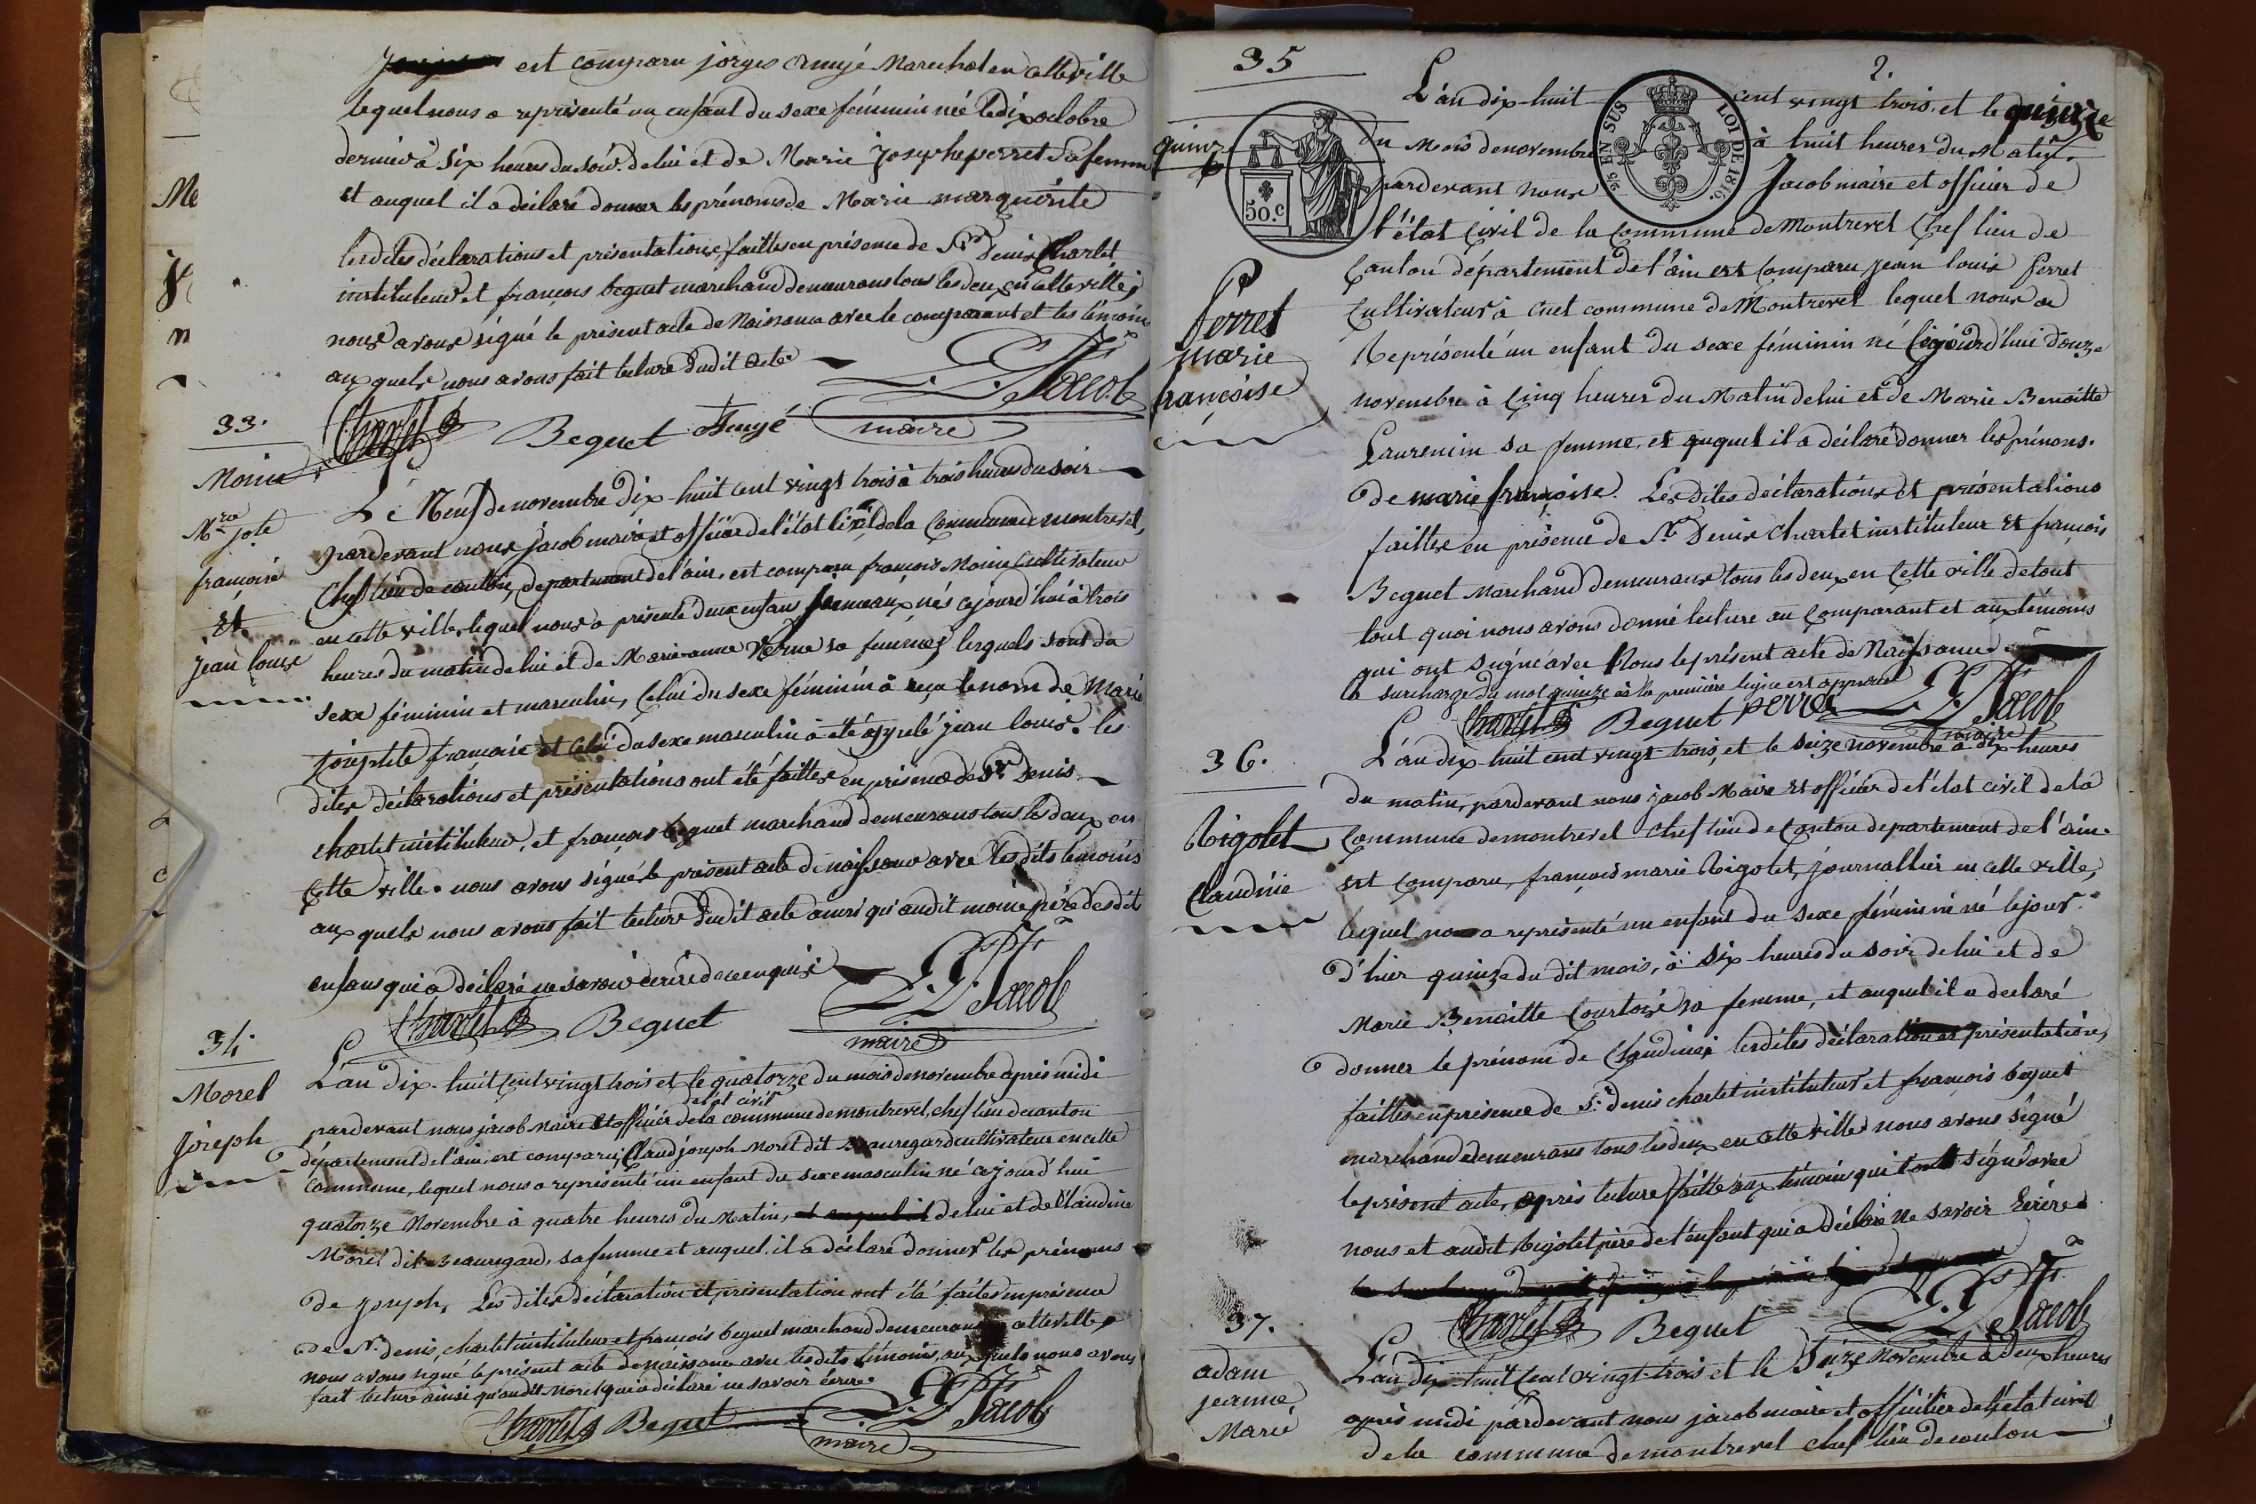 est comparu jorges Maréchal en cette ville
lequel nous a représenté un enfant du sexe féminin né le dix octobre
dernier à six heures du soir de lui et de Marie Josephe perret sa femme
et auquel il a déclaré donner les prénoms de Marie marguérite
lesdites déclarations et présentations faittes en présence de Sr Denis Charlet
instituteur et françois beguet marchand demeurans tous les deux en cette ville,
nous avons signé le présent acte de Naissance avec le comparant et les témoins
auxquels nous avons fait lecture dudit acte
Jacob
Charlet Beguet maire
33.
Moine
Mie jote
françoise
Et
jean louis
Le Neuf de novembre dix-huit cent vingt trois à trois heures du soir
pardevant nous jacob maire et officier de l'état civil de la Commune de montrevel,
Chef lieu de canton, département de l'ain, est comparu françois Moine Cultivateur
en cette ville, lequel nous a présenté deux enfans jumeaux nés cejourd'hui à trois
heures du matin de lui et de Marie-anne Verne sa femme, lesquels sont du
sexe féminin et masculin, Celui du sexe féminin à reçu le nom de Marie
josephte françoise et Celui du sexe masculin à été appelé jean louis. les
dites déclarations et présentations ont été faittes en présence de Sr Denis
charlet instituteur, et françois beguet marchand demeurans tous les deux en
Cette ville. nous avons signé le présent acte de naissance avec lesdits témoins
auxquels nous avons fait lecture dudit acte ainsi qu'audit moine père desdits
enfans qui a déclaré ne savoir écrire de ce enquis
Jacob
Charlet Beguet maire
34.
Morel
joseph
L'an dix-huit cent vingt trois et le quatorze du mois de novembre après midi
de l'état civil
pardevant nous jacob Maire et officier de la commune de montrevel, chef lieu de canton
département de l'ain, est comparu, Claud joseph Morel dit Beauregard cultivateur en cette
commune, lequel nous a représenté un enfant du sexe masculin né cejourd'hui
quatorze Novembre à quatre heures du Matin, et auquel il de lui et de Claudine
Morel dit Beauregard, sa femme et auquel il a déclaré donner les prénoms
de joseph, Les dites déclaration et présentation ont été faites en présence
de Sr denis, charlet instituteur et françois beguet marchand demeurans cette ville,
nous avons signé le présent acte de naissance avec lesdits témoins, auxquels nous avons
fait lecture ainsi qu'audit Morel qui a déclaré ne savoir écrire.
Charlet Beguet Jacob
maire
35
2.
quinze
EN SUS LOI DE 1816.
50.c
Perret
marie
françoise
L'an dix-huit cent vingt trois, et le quinze
du Mois de novembre à huit heures du Matin.
pardevant nous Jacob maire et officier de
l'état Civil de la Commune de Montrevel Chef lieu de
Canton département de l'ain est Comparu Jean louis Perret
Cultivateur à Cuet commune de Montrevel lequel nous a
Représenté un enfant du sexe féminin né cejourd'hui douze
novembre à Cinq heures du Matin de lui et de Marie Benoitte
Laurencin sa femme, et auquel il a déclaré donner les prénoms.
de marie françoise. Les dites déclarations et présentations
faittes en présence de Sr Denis Charlet instituteur et françois
Beguet Marchand demeurans tous les deux en Cette ville de tout
tout quoi nous avons donné lecture au Comparant et aux témoins
qui ont signé avec Nous le présent acte de Naissance.
la surcharge du mot quinze à la première ligne est approuvé
Charlet Beguet perret Jacob
maire
36.
Rigolet
Claudine
L'an dix-huit cent vingt-trois, et le seize novembre à dix heures
du matin, pardevant nous jacob Maire et officier de l'état civil de la
Commune de montrevel chef lieu de Canton département de l'ain.
est comparu, françois marie Rigolet, journallier en cette ville,
lequel nous a représenté un enfant du sexe féminin né le jour
d'hier quinze du dit mois, à six heures du soir de lui et de
Marie Benoitte Courtois sa femme, et auquel il a déclaré
donner le prénom de Claudine, lesdites déclaration et présentation,
faittes en présence de Sr denis charlet instituteur et françois beguet
marchand demeurans tous les deux en cette ville nous avons signé
le présent acte, après lecture faitte aux témoins qui l'ont signé avec
nous et audit Rigolet père de l'enfant qui a déclaré ne savoir écrire
Charlet Beguet Jacob
37.
adam
jeanne
Marie
L'an dix-huit cent vingt-trois et le Seize novembre à deux heures
après midi pardevant nous jacob maire et officier de l'état civil
de la commune de montrevel chef lieu de canton